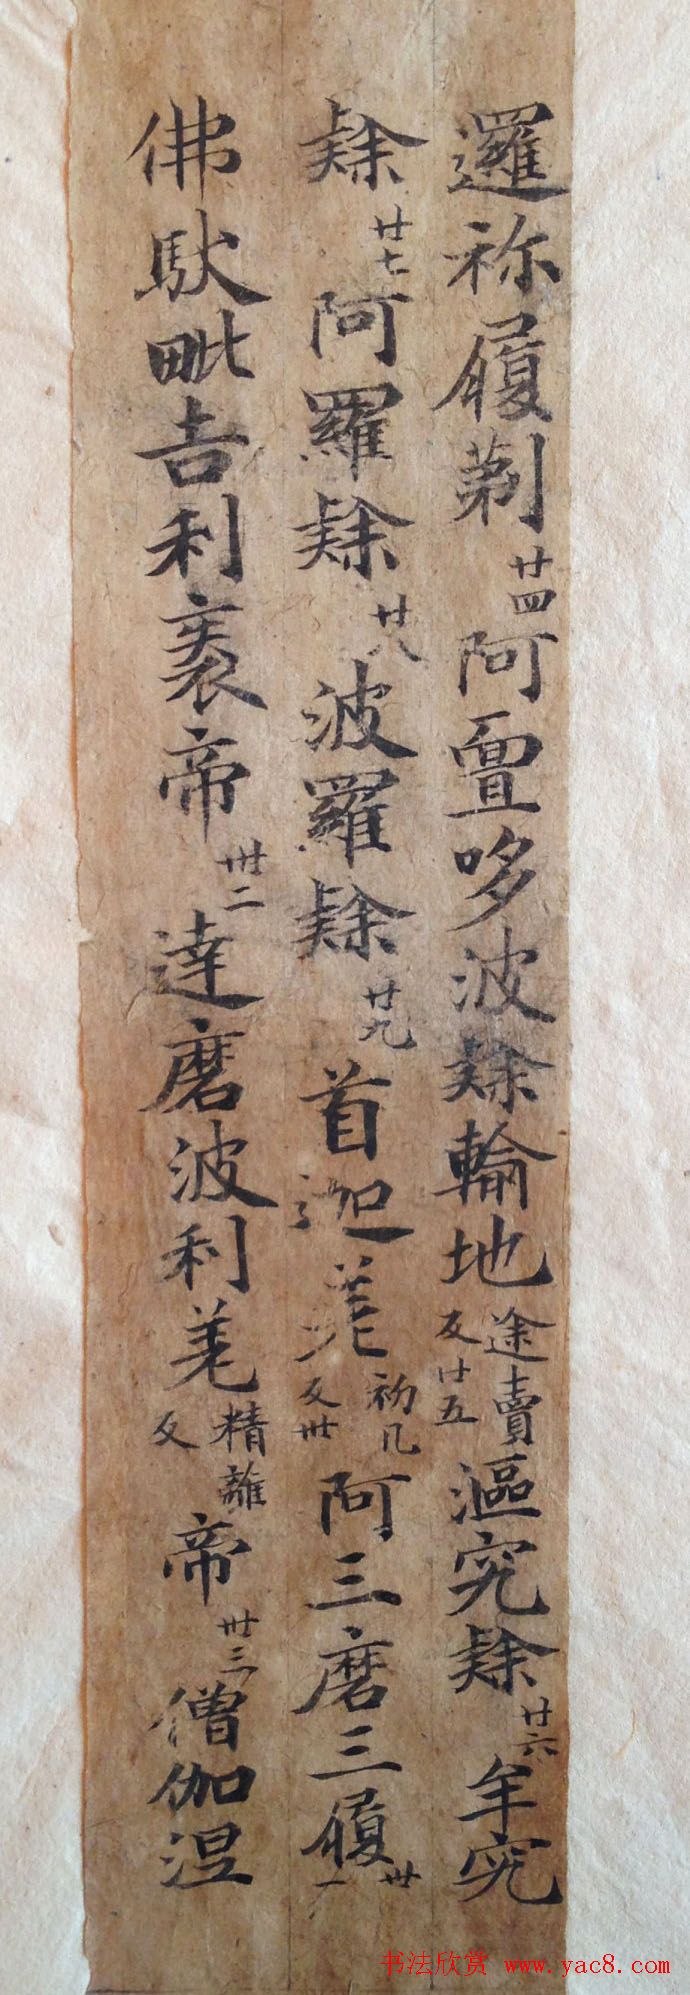 邏祢履剃廿四阿亶哆波隸輸地途賣反廿五漚究隸廿六牟究
隸廿七阿羅隸廿八波羅隸廿九首迦差初几反卅阿三磨三履卅一
佛馱毗吉利袠帝卅二達磨波利差精離反帝卅三僧伽涅
书法欣赏 www.yac8.com